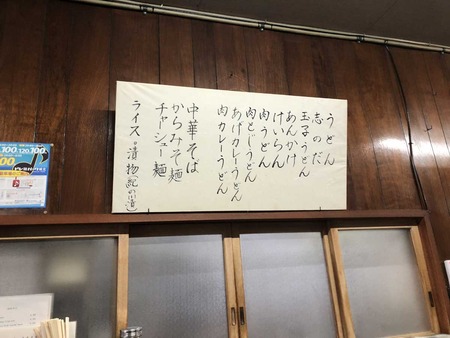 うどん
志のだ
玉子うどん
あんかけ
けいらん
肉うどん
肉とじうどん
あげカレーうどん
肉カレーうどん
中華そば
からみそ麺
チャシュー麺
ライス
100 120 100